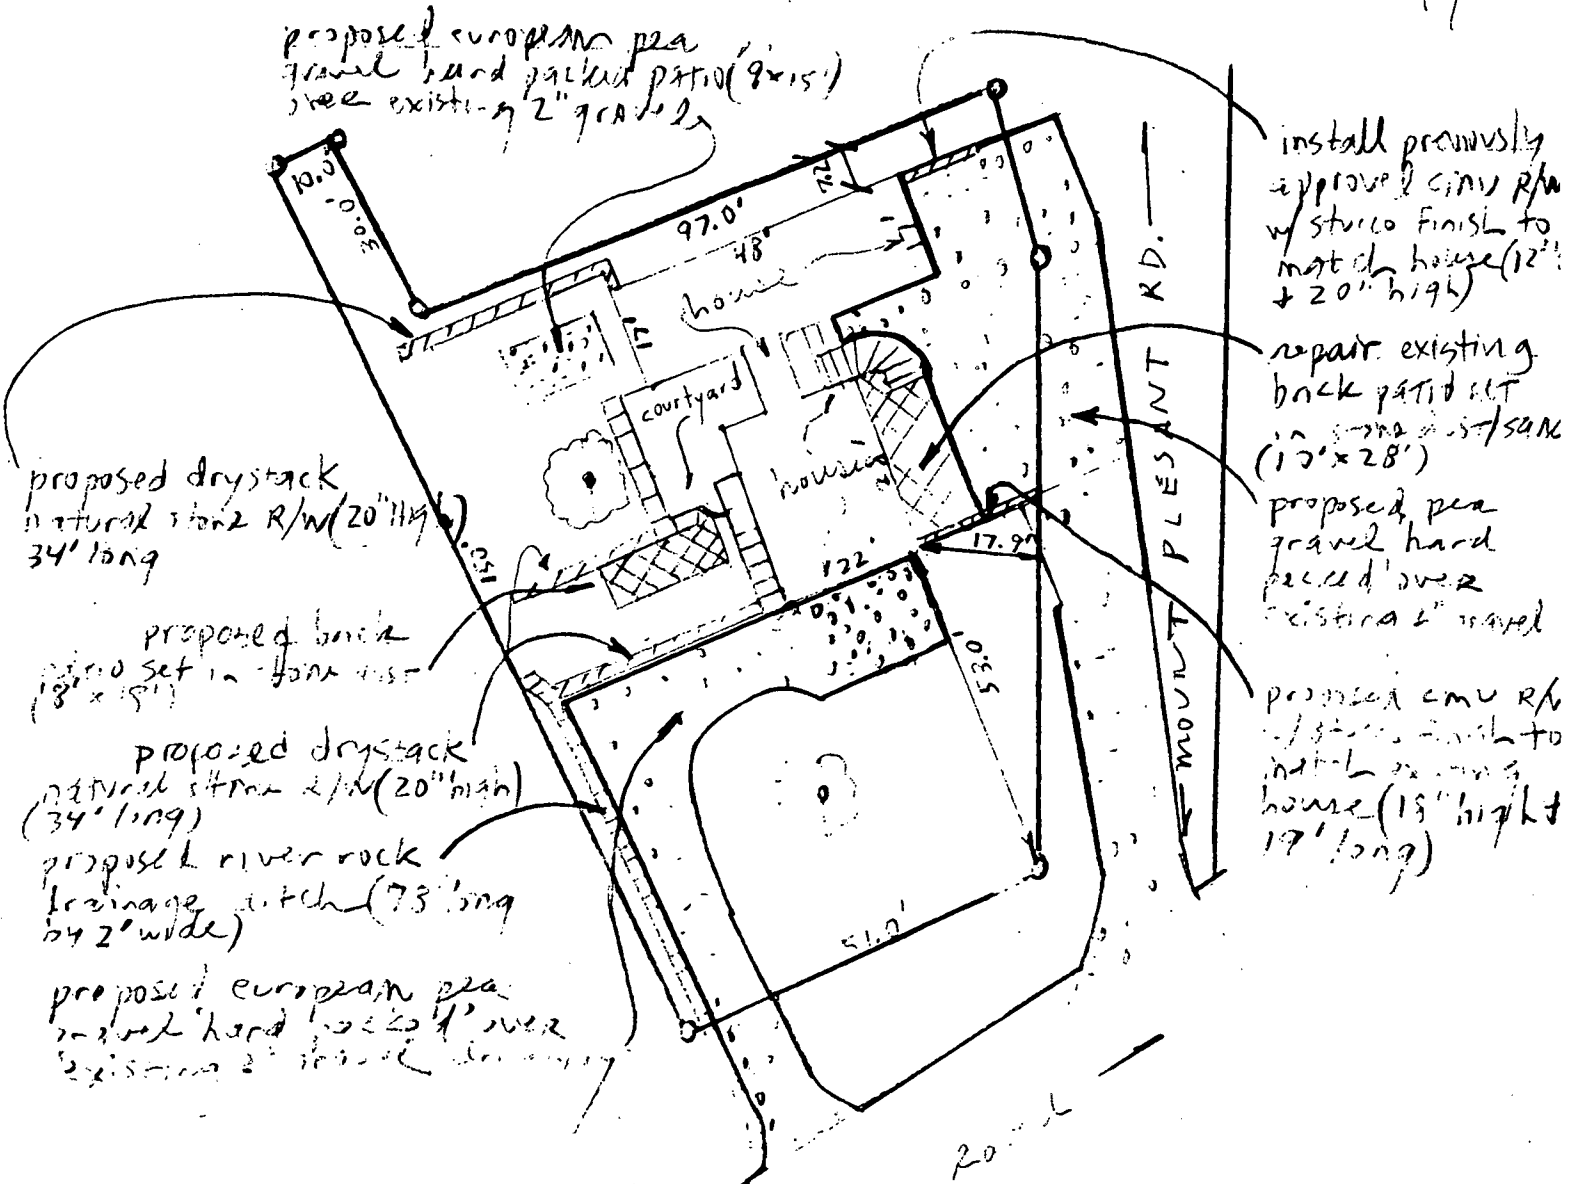 proposed european pea
gravel hard packed patio (9'x15')
over existing 2" gravel
install previously
approved cmu R/W
w/ stucco finish to
match house (12"
+ 20" high)
repair existing
brick patio set
in stone dust/sand
(12'x28')
proposed pea
gravel hard
packed over
existing 2" gravel
proposed cmu R/W
w/ stucco finish to
match existing
house (18" high +
19' long)
proposed drystack
natural stone R/W (20" High)
34' long
proposed brick
patio set in stone dust
(8' x 18')
proposed drystack
natural stone R/W (20" high)
(34' long)
proposed river rock
drainage ditch (73' long
by 2' wide)
proposed european pea
gravel hard packed over
existing 2" gravel driveway
10.0'
30.0'
97.0'
48'
house
17'
courtyard
house
122'
17.9'
53.0'
51.0'
150'
MOUNT PLESANT RD.
road